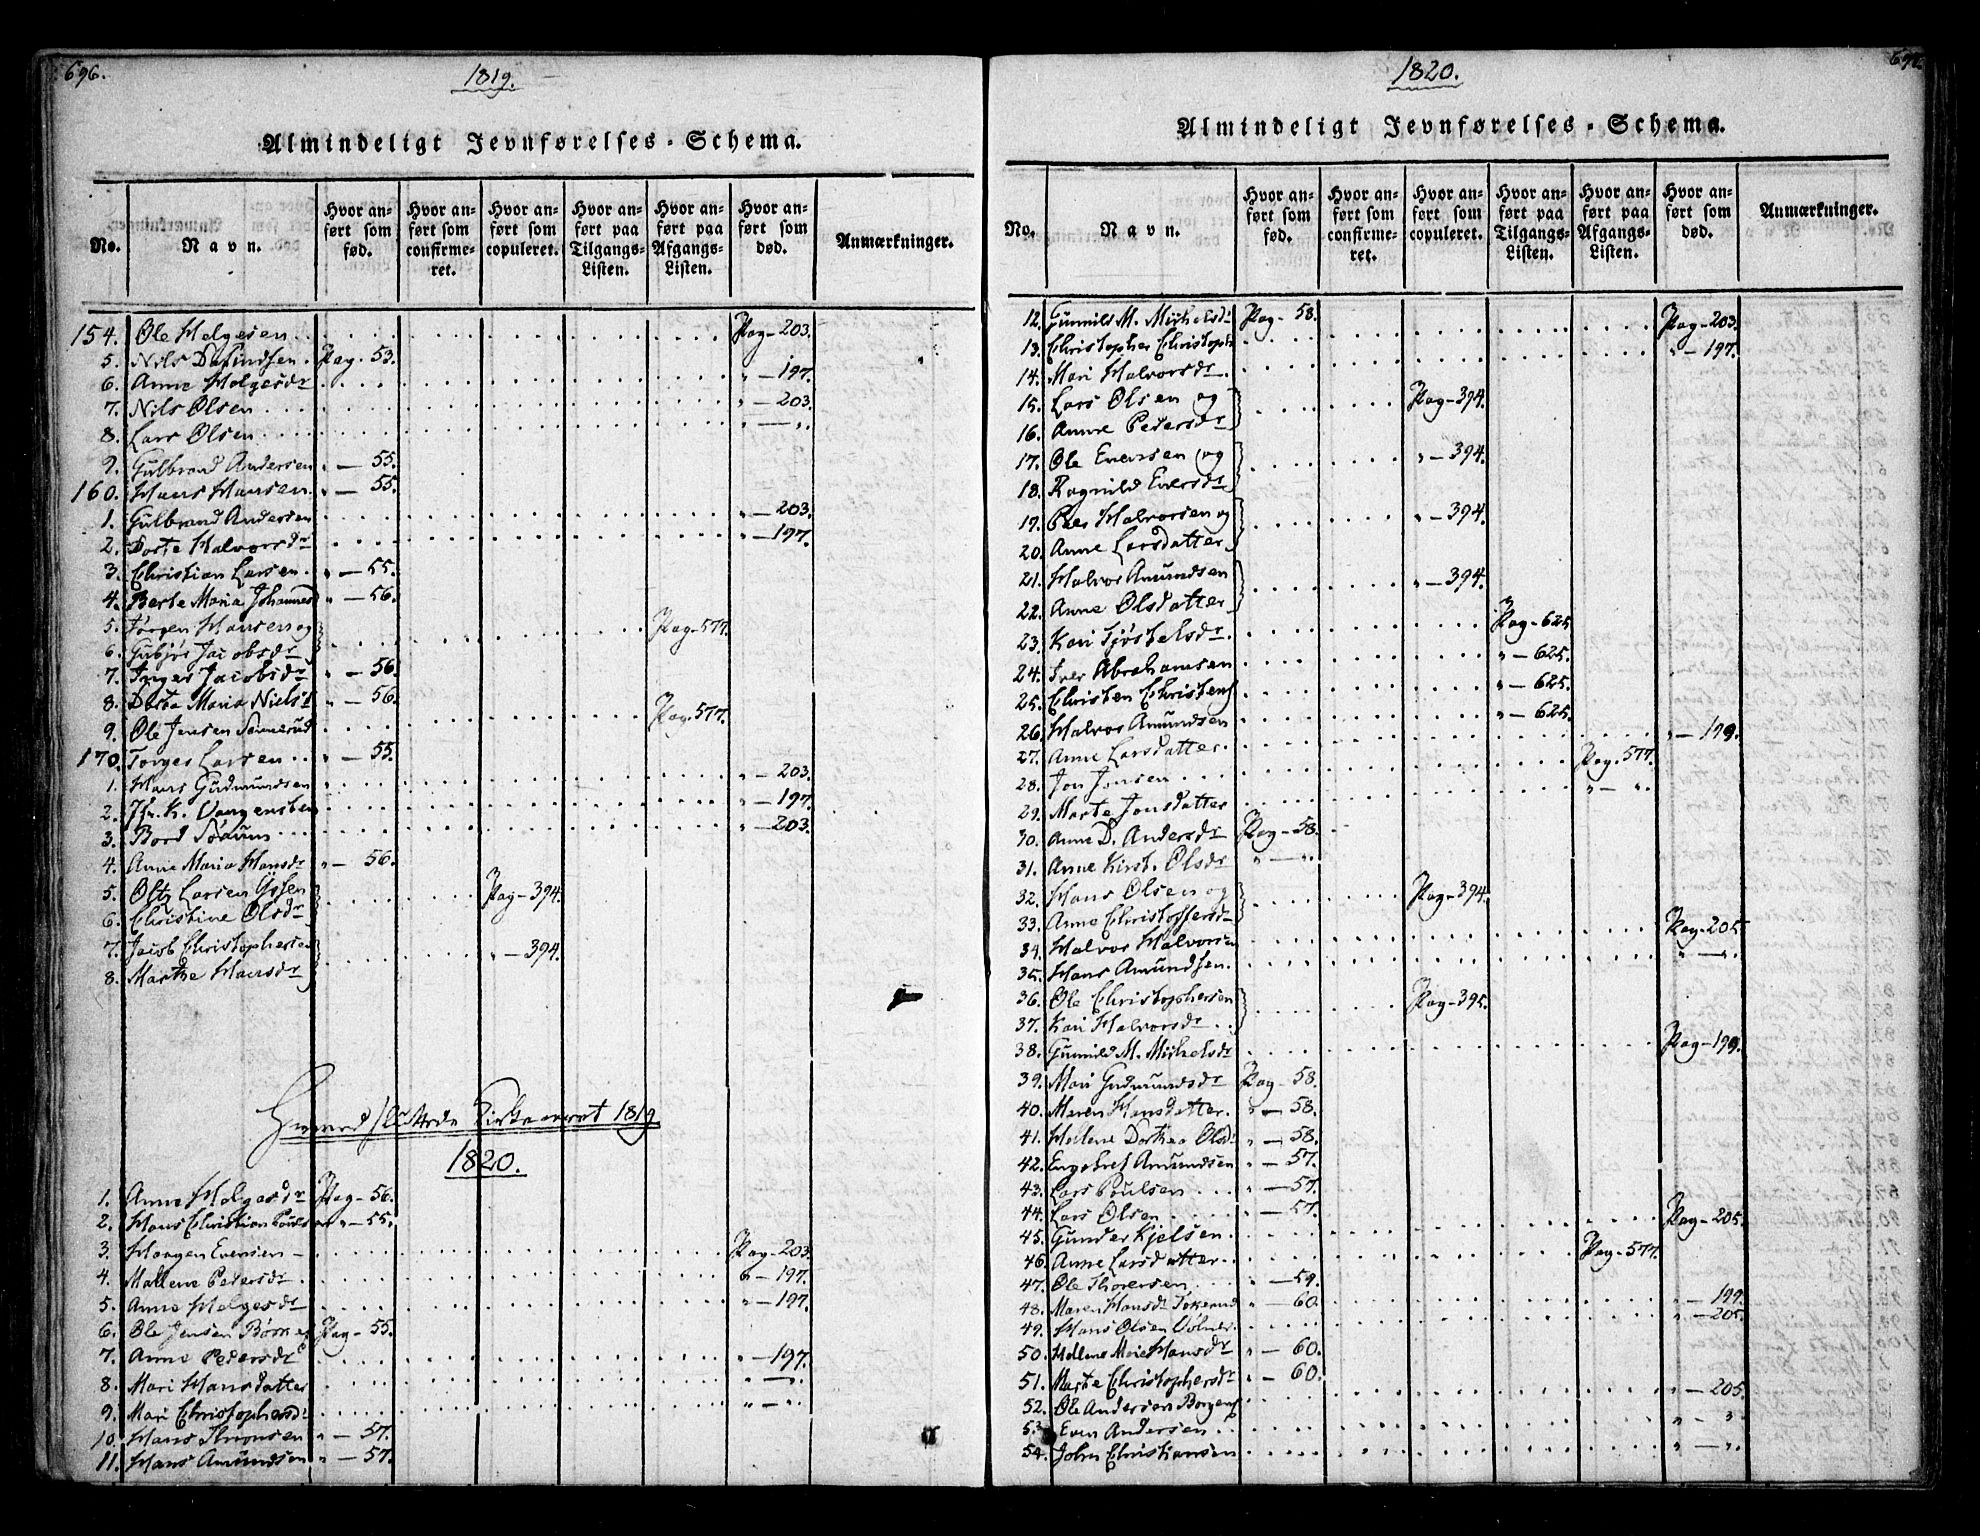 696.
1819.
Almindeligt Jevnførelses-Schema.
No.
Navn.
Hvor anført som fød.
Hvor anført som confirmeret.
Hvor anført som copuleret.
Hvor anført paa Tilgangs-Listen.
Hvor anført paa Afgangs-Listen.
Hvor anført som død.
Anmærkninger.
154. Ole Helgesen Pag-203.
5. Nils Pag. 53.
6. Anne Helgesdr " - 197.
7. Nils Olsen " - 203.
8. Lars Olsen " - ".
9. Gulbrand Andersen " - 55.
160. Hans Hansen " - 55.
1. Gulbrand Andersen " - 203.
2. Dorte Halvorsdr " - 197.
3. Christian Larsen " - 55.
4. Berte Maria Johannesd " - 56.
5. Jørgen Hansen og Pag-577.
6. Gubjør Jacobsdr
7. Inger Jacobsdr " - 56.
8. Dorte Maria Nielsd " - 56.
9. Ole Jensen Pag. 577.
170. Torger Larsen " - 55.
1. Hans Gudmundsen " - 203.
2. K. Vangensten " - 197.
3. Bord " - 203.
4. Anne Maria Hansdr " - 56.
5. Larsen Pag-394.
6. Christine Olsdr
7. Jacob Christophersen " - 394.
8. Marthe Hansdr
1819
1820.
1. Anne Helgesdr Pag-56.
2. Hans Christian Pouls " - 55.
3. Haagen Evensen - Pag-203.
4. Mallene Pedersdr - 197.
5. Anne Helgesdr " - 197.
6. Ole Jensen Pag-55.
7. Anne Pedersdr " - 197.
8. Mari Hansdatter " - ".
9. Mari Christophersd " - ".
10. Hans " - 57.
11. Hans Amundsen " - 57.
1820.
Almindeligt Jevnførelses-Schema.
No.
Navn.
Hvor anført som fød.
Hvor anført som confirmeret.
Hvor anført som copuleret.
Hvor anført paa Tilgangs-Listen.
Hvor anført paa Afgangs-Listen.
Hvor anført som død.
Anmærkninger.
12. Gunnild M. Michelsdr Pag-58.
13. Christopher Christoph Pag-203.
14. Mari Halvorsdr " - 197.
15. Lars Olsen og Pag-394.
16. Anne Pedersdr
17. Ole Evensen og " - 394.
18. Ragnild Eversdr
19. Peer Halvorsen og " - 394.
20. Anne Larsdatter
21. Halvor Amundsen " - 394.
22. Anne Olsdatter
23. Kari Pag-625.
24. Iver Abrahamsen " - 625.
25. Christen Christens " - 625.
26. Halvor Amundsen " - 625.
27. Anne Larsdatter " - 199.
28. Jon Jonsen Pag. 577.
29. Marte Jonsdatter " - ".
30. Anne D. Andersdr Pag-58.
31. Anne Kirst. Olsdr " - ".
32. Hans Olsen og Pag-394.
33. Anne Christoffersdr
34. Halvor Halvorsen Pag-205.
35. Hans Amundsen " - ".
36. Ole Christophersen Pag-395.
37. Kari Halvorsdr
38. Gunnild M. Michelsdr Pag-199.
39. Mari Gudmundsdr Pag-58.
40. Maren Hansdatter " - 58.
41. Hellene Dorthea Olsd " - 58.
42. Engebret Amundsen " - 57.
43. Lars Poulsen " - 57.
44. Lars Olsen " - 57.
45. Gunder Kjelsen Pag-205.
46. Anne Larsdatter Pag-577.
47. Ole Thoresen " - 59.
48. Maren Hansdr " - 60.
49. Hans Olsen
50. Hellene Marie Hansdr " - 60.
51. Marte Christophersdr " - 60.
52. Ole Andersen " - 205.
53. Even Andersen " - ".
54. John Christiansen " - ".